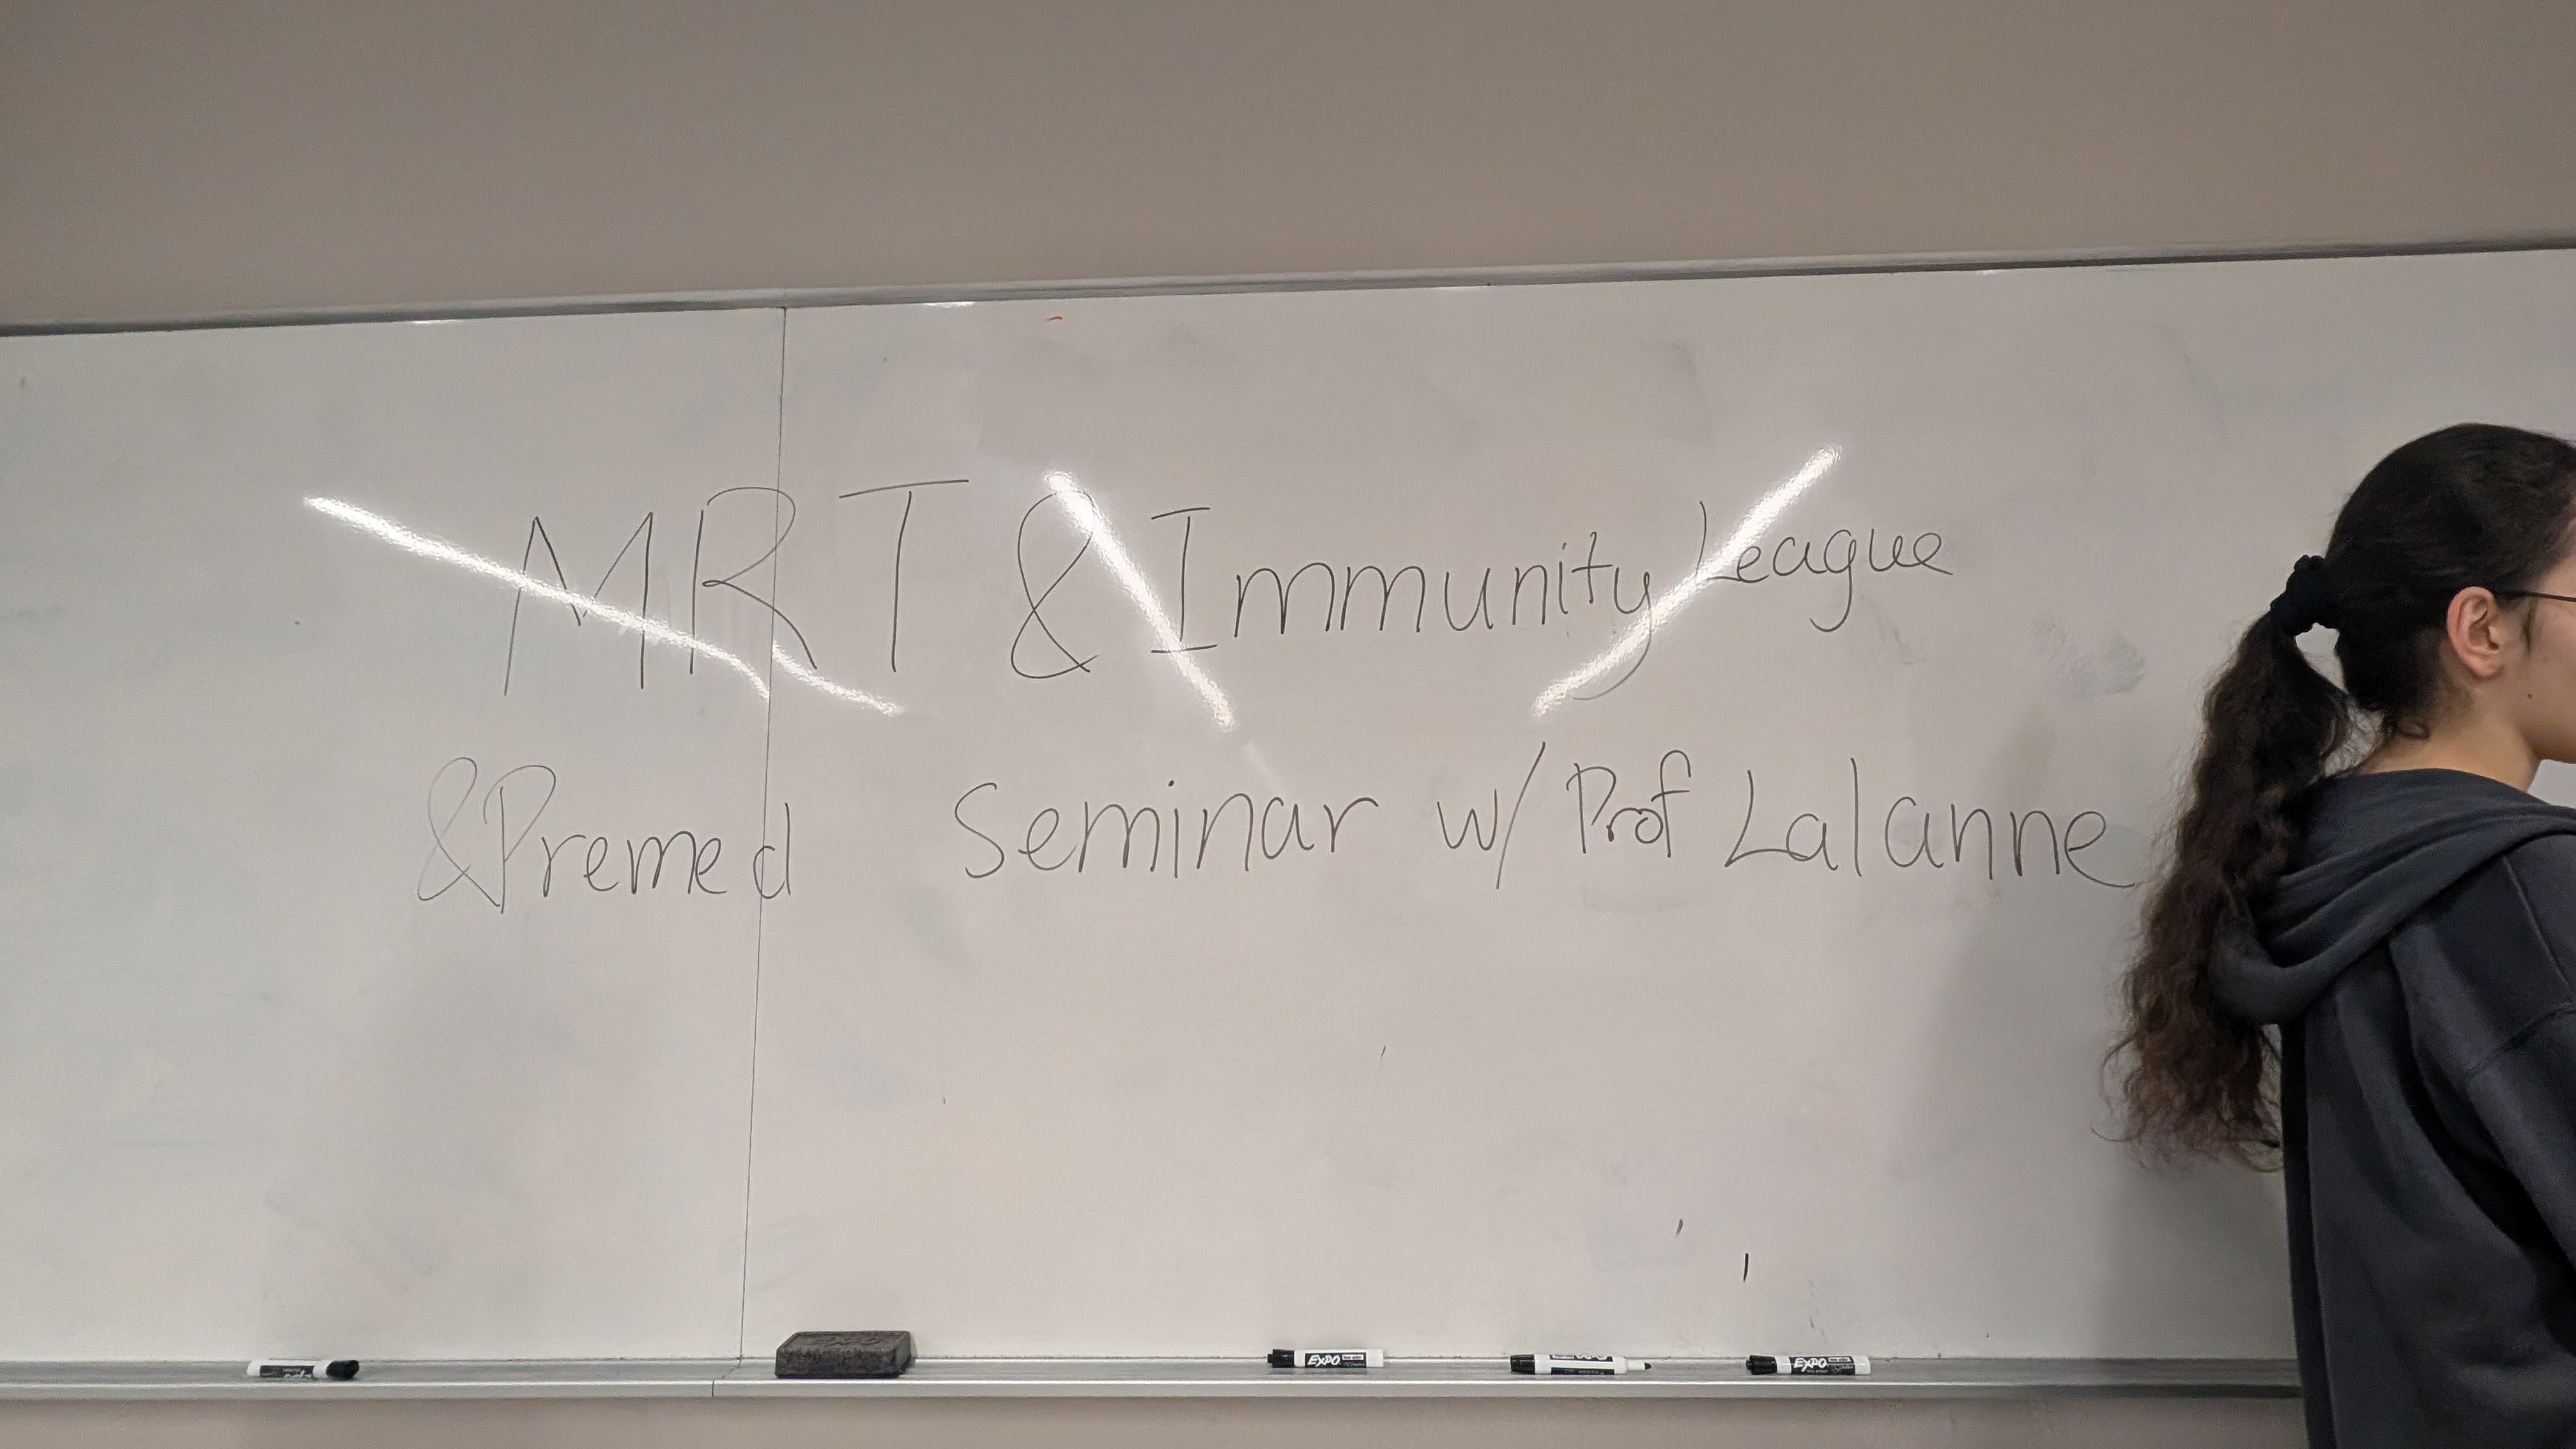 MRT & Immunity League
& Premed Seminar w/ Prof Lalanne
EXPO
EXPO